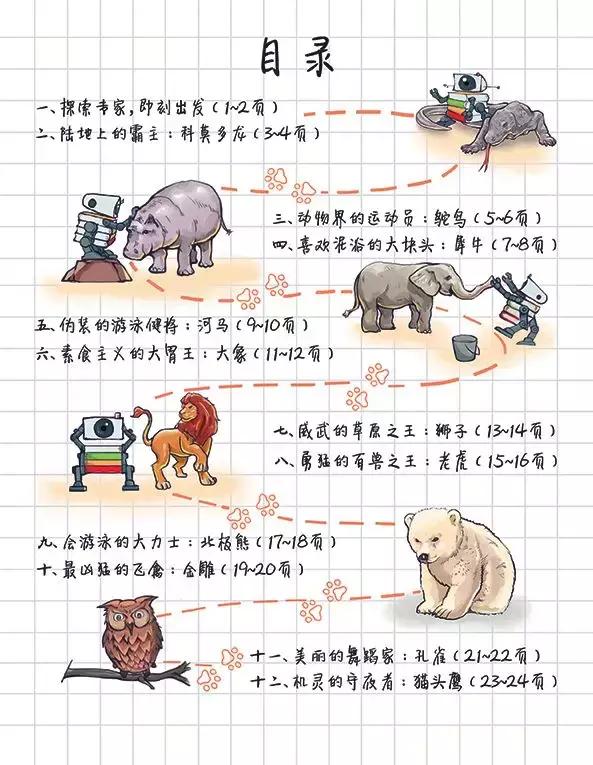 目录
一、探索专家，即刻出发(1~2页)
二、陆地上的霸主：科莫多龙(3~4页)
三、动物界的运动员：鸵鸟(5~6页)
四、喜欢泥浴的大块头：犀牛(7~8页)
五、伪装的游泳健将：河马(9~10页)
六、素食主义的大胃王：大象(11~12页)
七、威武的草原之王：狮子(13~14页)
八、勇猛的百兽之王：老虎(15~16页)
九、会游泳的大力士：北极熊(17~18页)
十、最凶猛的飞禽：金雕(19~20页)
十一、美丽的舞蹈家：孔雀(21~22页)
十二、机灵的守夜者：猫头鹰(23~24页)